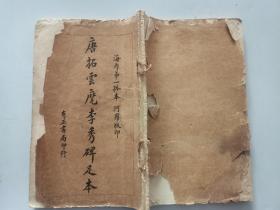 海內第一孤本 珂羅版印
唐拓雲麾李秀碑足本
有正書局印行